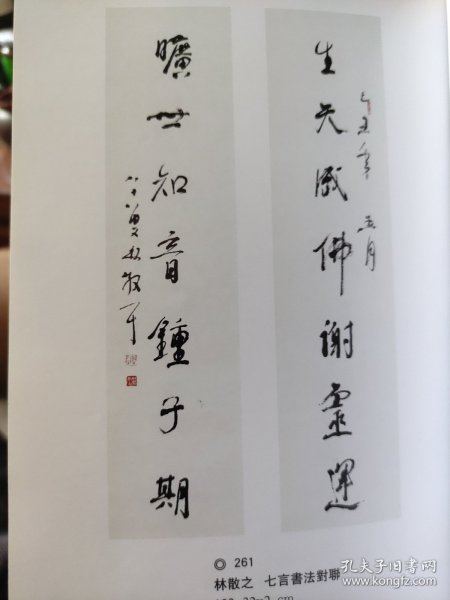 生天成佛謝靈運
乙丑年 五月
曠世知音鍾子期
八十八叟林散耳
261
林散之 七言書法對聯
cm
孔夫子旧书网